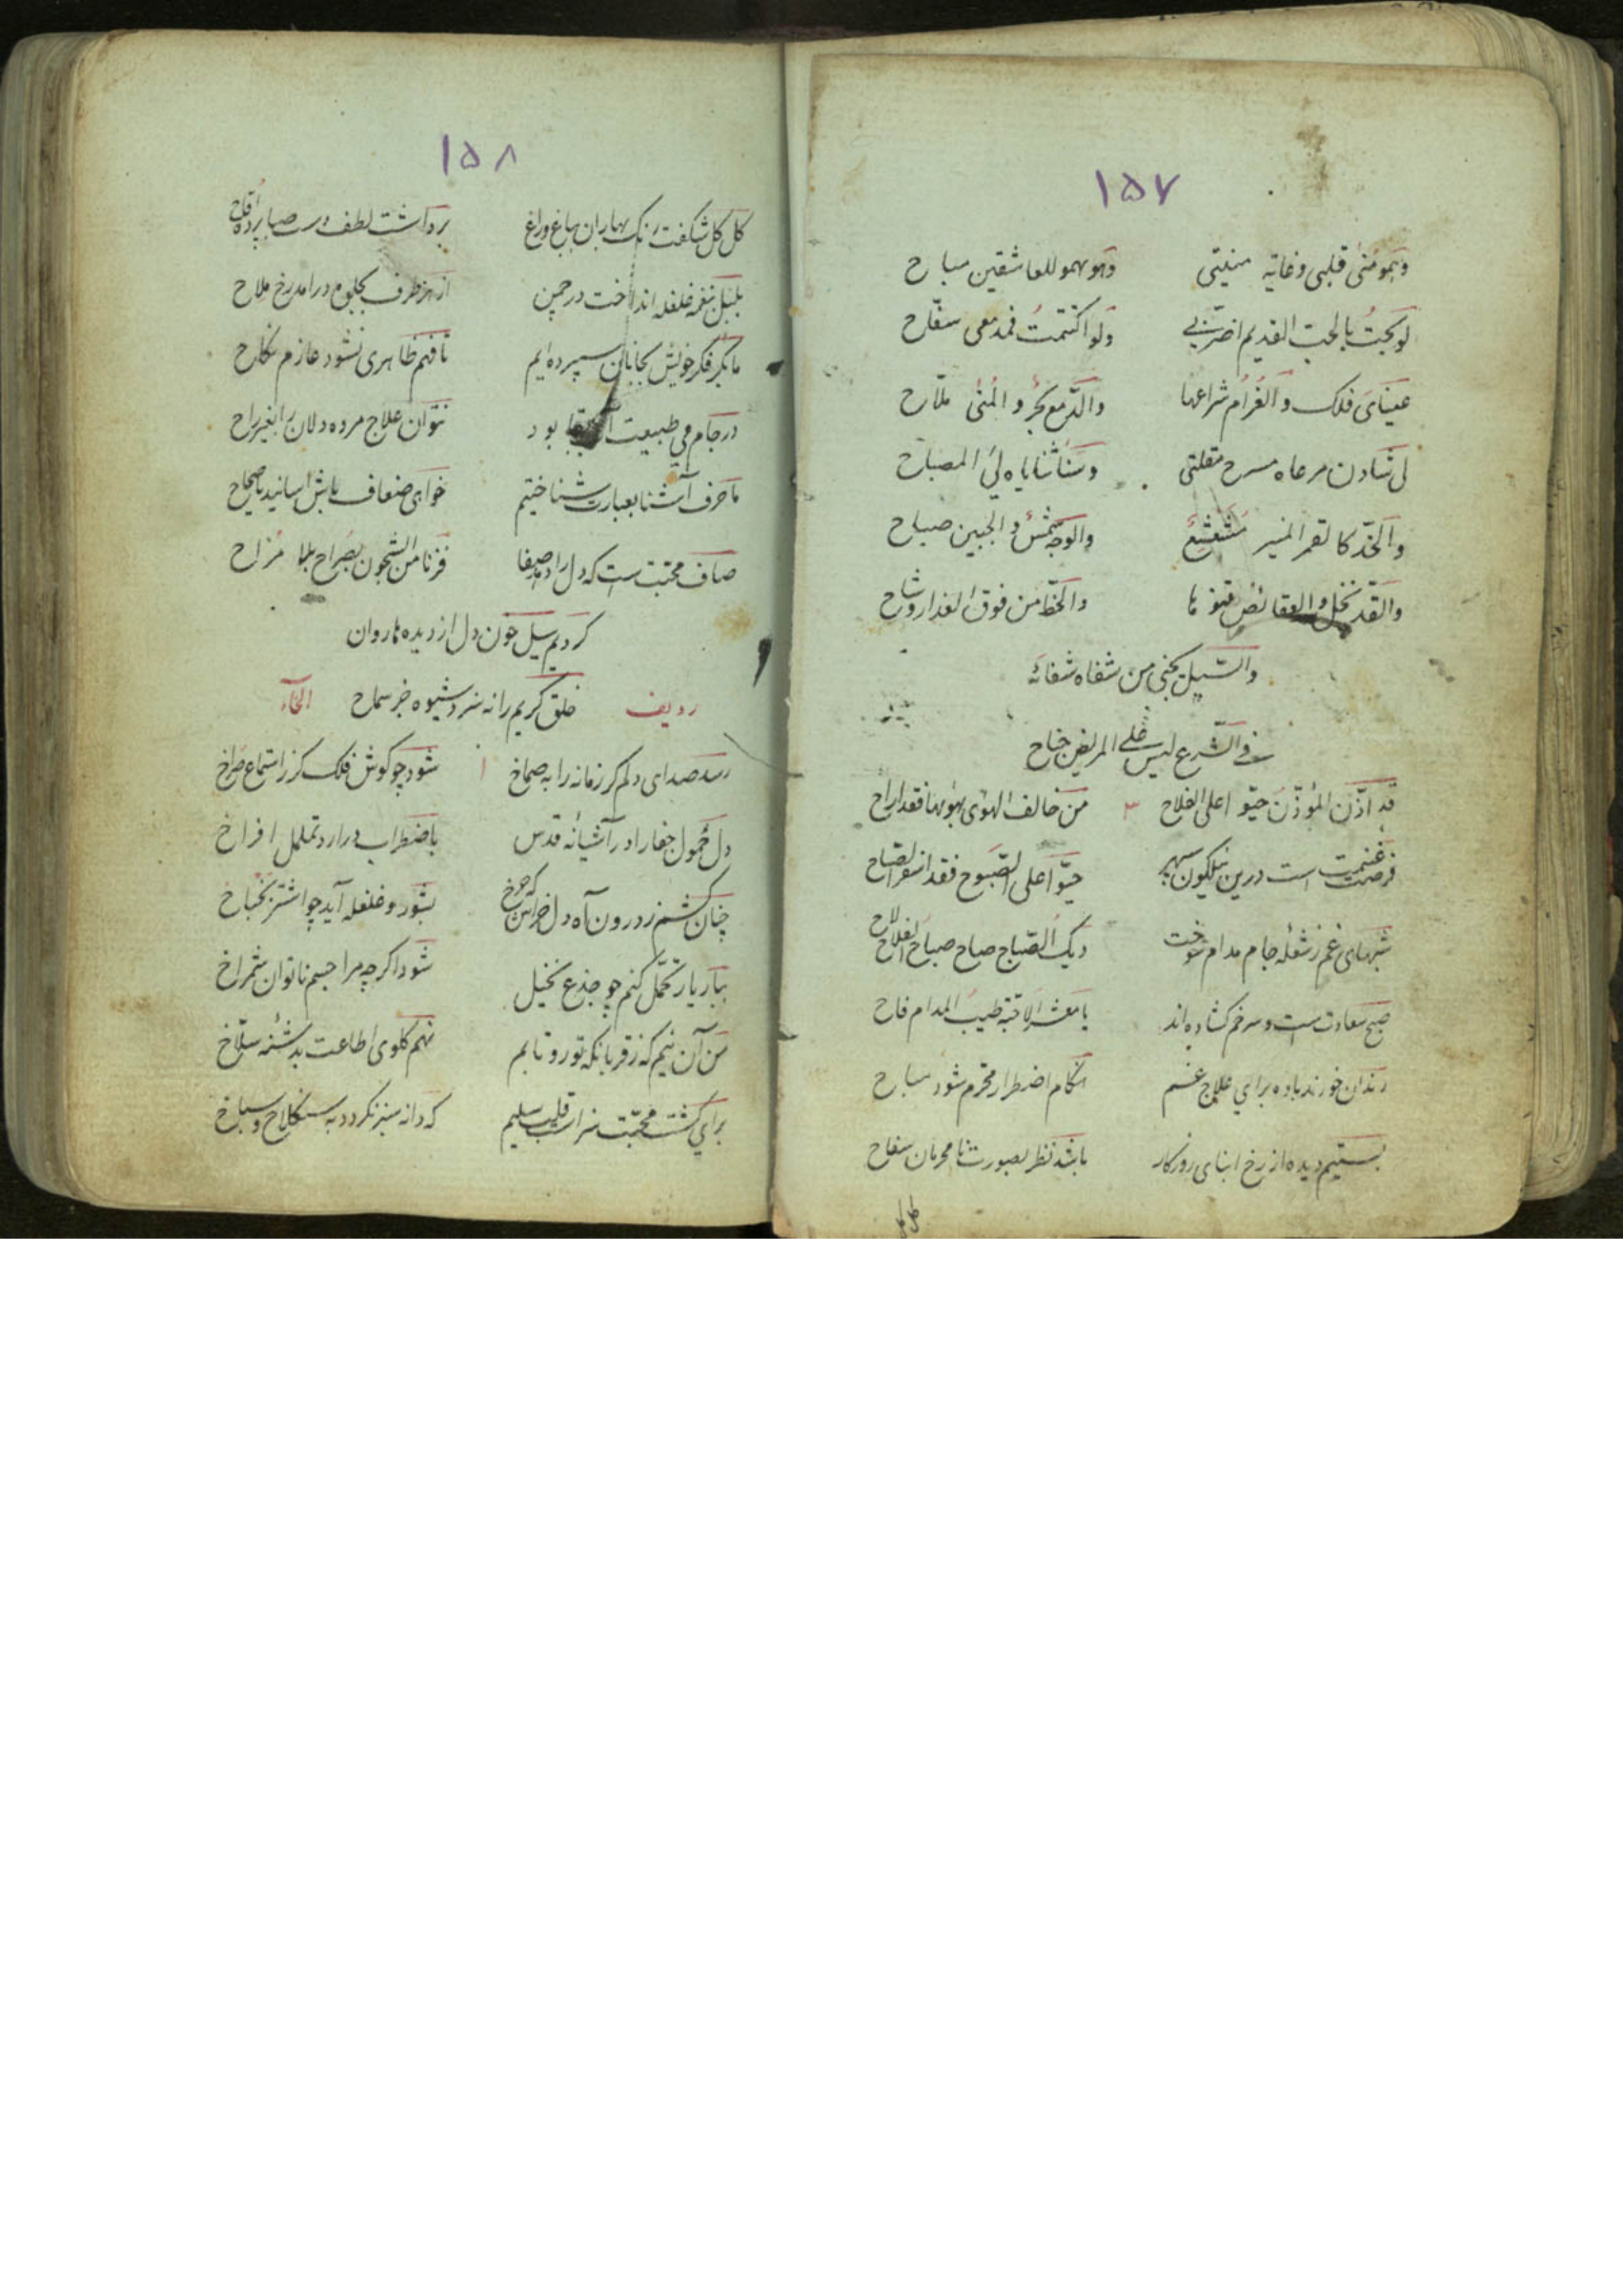 ۱۵۷
وهو منی قلبی وغایه منیتی وهو للعاشقین مباح
لو بحت بالحب القدیم اضر بی ولو اکتتمت فمدمعی سفّاح
عینای فلک والغرام شراعها والدمع بحر والمنی ملّاح
لی شادن مرعاه مسرح مقلتی وسنا ثنایاه لی المصباح
والخدّ کالقمر المنیر مشعشع والوجه شمس والجبین صباح
والقدّ نخل والعقائص والخطّ من فوق العذار وشاح
یجنی من شفاه شفائه
فی الشرع لیس علی المریض جناح
قد اذّن المؤذّن حیّوا علی الفلاح ۳ من خالف الهوی فقد اراح
فرصت غنیمت است درین نیلگون سپهر حیّوا علی الصّبوح فقد اسفر الصباح
شبهای غم ز شعله جام مدام سوخت دیک الصّباح صاح صباح الفلاح لاح
صبح سعادت است و سر خم کشاده‌اند یا معشر الاحبّه طیب المدام فاح
رندان خورند باده برای علاج غم هنکام اضطرار محرّم شود مباح
بستیم دیده از رخ ابنای روزکار باشد نظر بصورت نامحرمان سفاح
کل کل
۱۵۸
کل کل شکفت رنک بهاران بباغ و راغ برداشت لطف دست صبا پرده اقاح
بلبل نغمه غلغله انداخت در چمن از هر طرف بجلوه درآمد رخ ملاح
ما بکر فکر خویش بجانان سپرده‌ایم تا فهم ظاهری نشود عازم نکاح
در جام می طبیعت آب بقا بود نتوان علاج مرده دلان را بغیر راح
ما حرف آشنا بعبارت شناختیم
صاف محبّت است که دل را دهد صفا فزنا من الشجون بصراح بلا مزاح
کردیم سیل خون دل از دیده‌ها روان
خلق کریم را نه سزد شیوه جز سماح
ردیف الخاء
رسد صدای دلم کر زمانه را به صماخ ۱ شود چو کوش فلک کر ز استماع صراخ
دل حمول جفا را در آشیانه قدس باضطراب درارد تململ افراخ
چنان کشم ز درون آه دلخراش که چرخ بشور و غلغله آید چو اشتر نخناخ
ببار یار تحمّل کنم چو جذع نخیل شود اکرچه مرا جسم ناتوان شمراخ
من آن نیم که ز قربانکه تو رو تابم نهم کلوی اطاعت بدشنه سلّاخ
برای کشت محبّت سزاست قلب سلیم که دانه سبز نکردد به سنکلاخ و سباخ